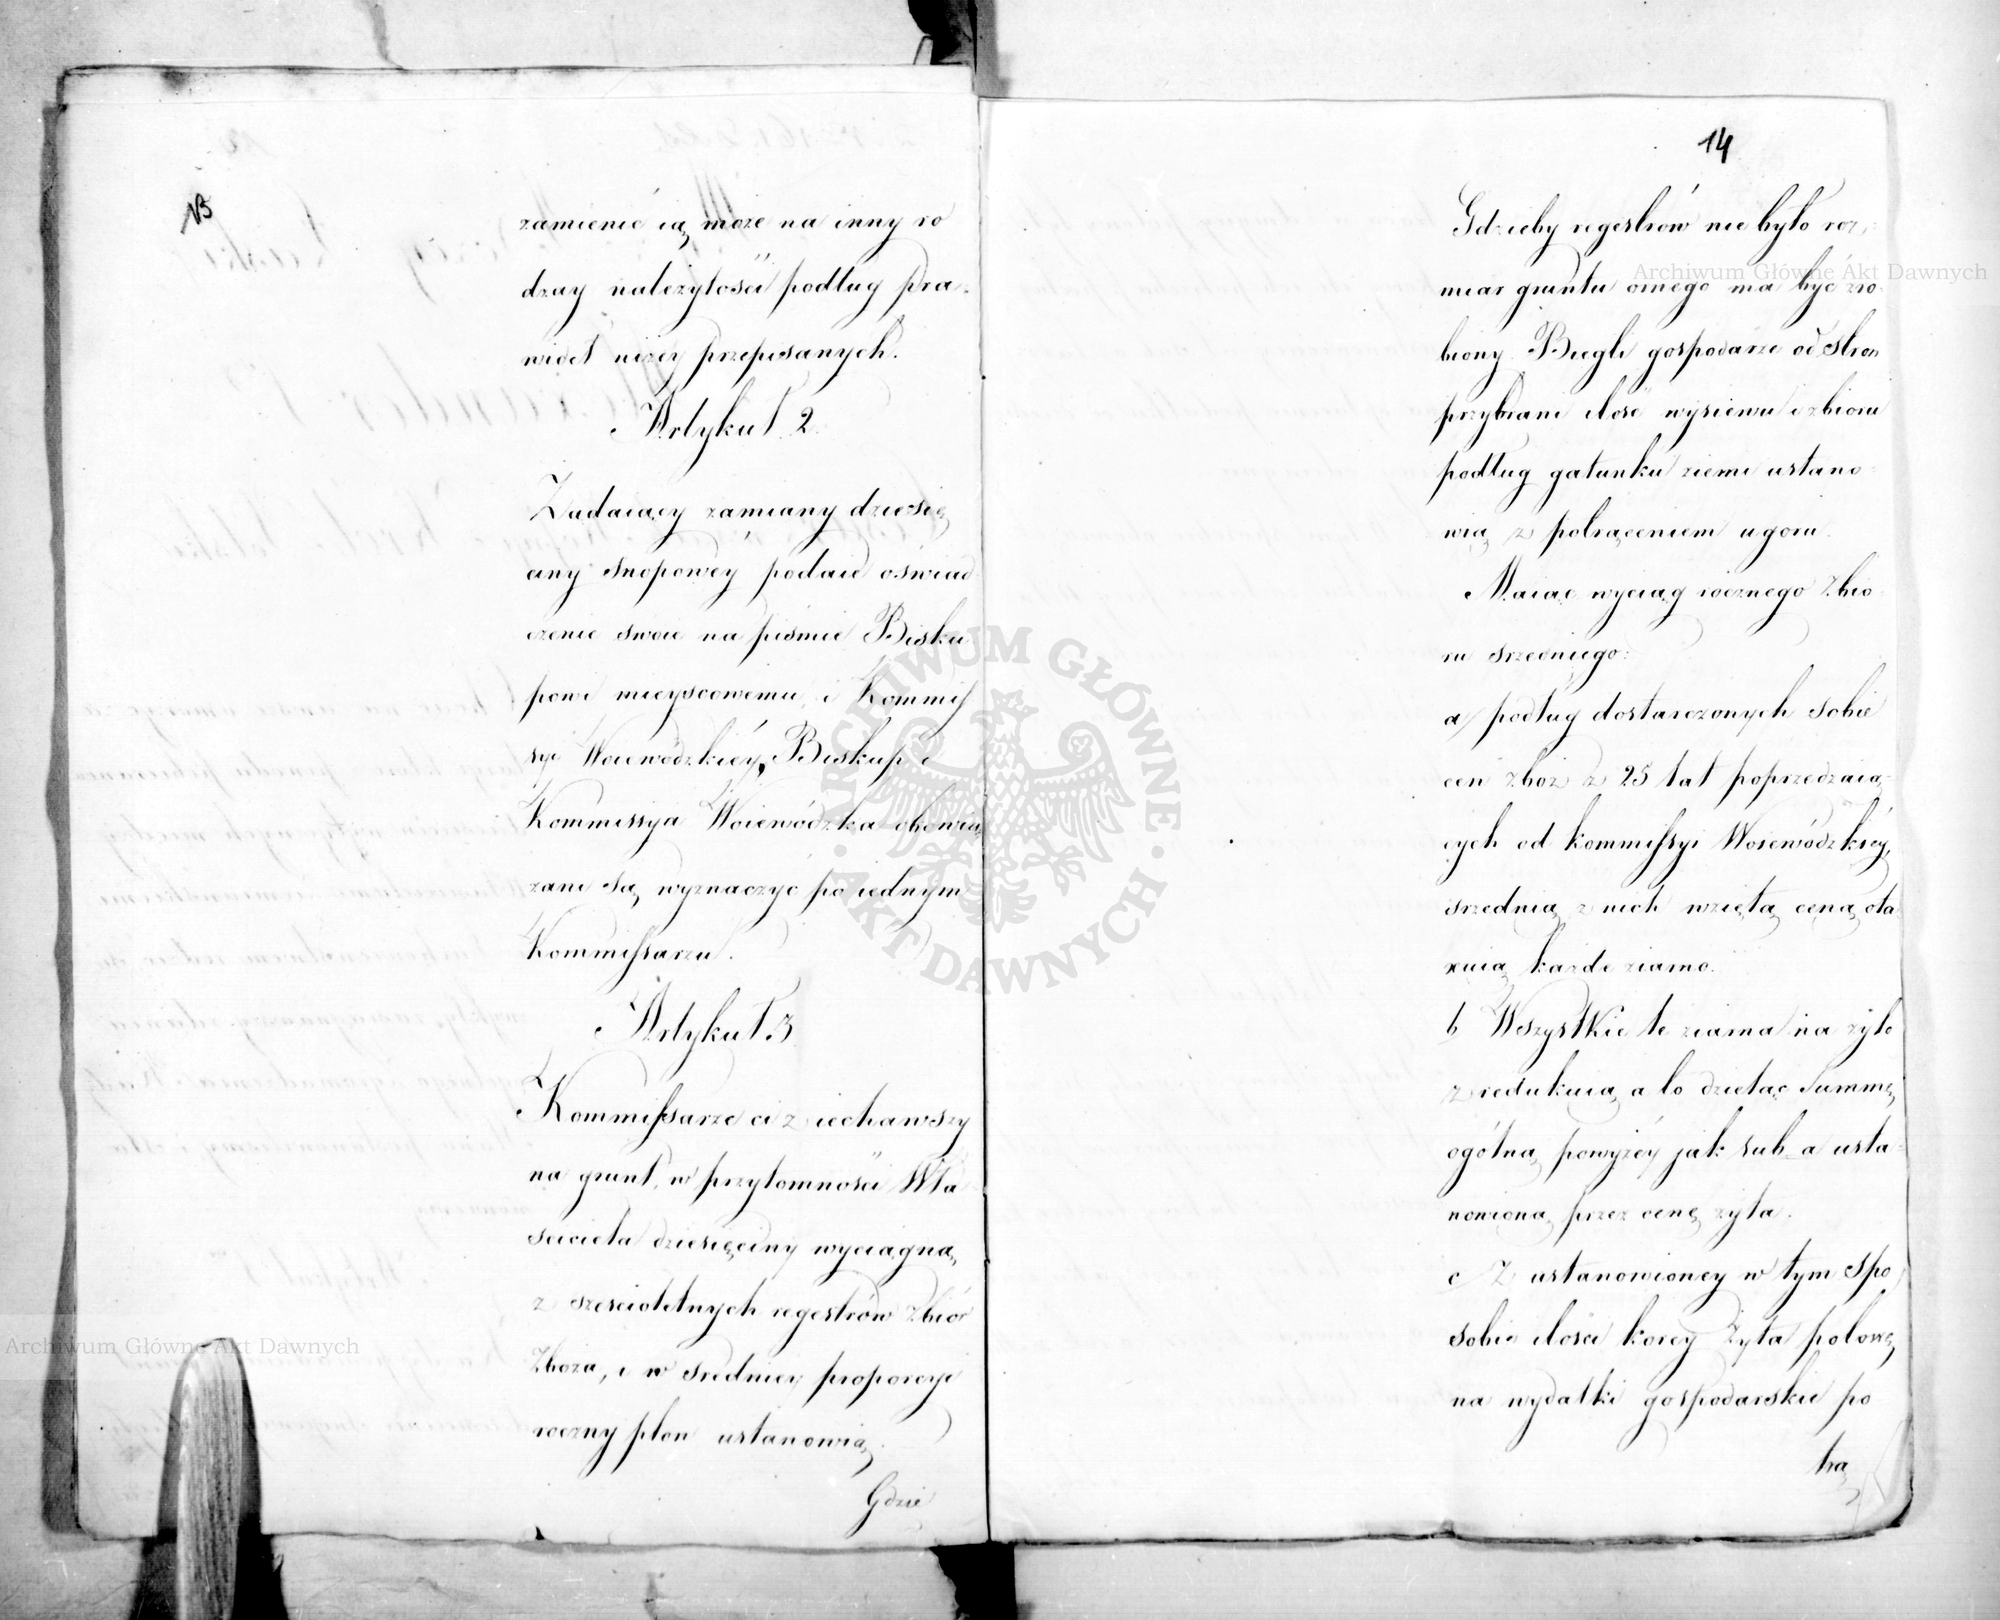 13
zamienić ią może na inny ro
dzay należytości podług pra-
wideł niżey przepisanych.
Artykuł 2.
Żądaiący zamiany dziesię
ciny snopowéy podaie oświad
czenie swoie na piśmie Bisku
powi mieyscowemu, i Kommis
syi Woiewódzkiéy, Biskup i
Kommissya Woiewódzka obowią
zani są, wyznaczyć po iednym
Kommissarzu.
Artykuł 3
Kommissarze ci ziechawszy
na grunt, w przytomności Wła
ściciela dziesięciny wyciągną,
z sześcioletnych regestrów zbiór
Zboża, i w średniey proporcyi
roczny plon ustanowią.
Gdzie
14
Gdzieby regestrów nie było roz-
miar gruntu ornego ma być zro-
biony. Biegli gospodarze od stron
przybrani ilość wysiewu i zbioru
podług gatunku ziemi ustano-
wią z potrąceniem ugoru.
Maiąc wyciąg rocznego Zbio-
ru średniego:
a/ podług dostarczonych sobie
cen zboż z 25 lat poprzedzaią-
cych od kommissyi Woiewódzkiéy,
średnią z nich wziętą ceną ota-
xuią każde ziarno.
b Wszystkie te ziarna na żyto
zredukuią, a to dzieląc Summę
ogólną powyżéy jak sub a usta-
nowioną, przez cenę żyta.
c/ Z ustanowioney w tym spo
sobie ilości korcy Żyta połowę
na wydatki gospodarskie po
trą
Archiwum Główne Akt Dawnych
Archiwum Główne Akt Dawnych
ARCHIWUM GŁÓWNE · AKT DAWNYCH ·